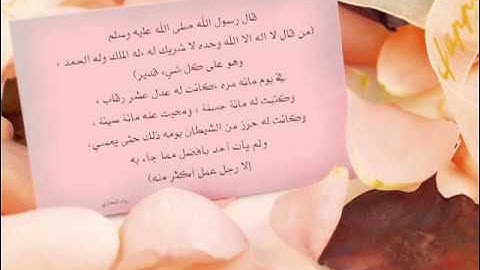 قال رسول الله صلى الله عليه وسلم
(من قال لا اله الا الله وحده لا شريك له ،له الملك وله الحمد ،
وهو على كل شيء القدير)
في يوم مائة مره ،كانت له عدل عشر رقاب ،
وكتبت له مائة حسنة ، ومحيت عنه مائة سيئة ،
وكانت له حرز من الشيطان يومه ذلك حتى يمسي ،
ولم يات احد بافضل مما جاء به
(الا رجل عمل اكثر منه)
رواه البخاري